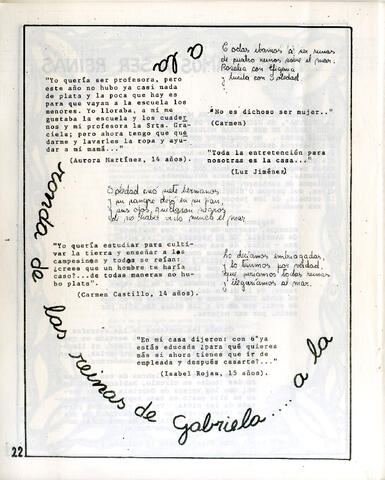 a la
Todas íbamos a ser reinas
de cuatro reinos sobre el mar.
Rosalía con Efigenia
y Lucila con Soledad
"Yo quería ser profesora, pero
este año no hubo ya casi nada
de plata y la poca que hay es
para que vayan a la escuela los
menores. Yo lloraba, a mí me
gustaba la escuela y los cuader
nos y mi profesora la Srta. Gra-
ciela; pero ahora tengo que que
darme y lavarles la ropa y ayu-
dar a mi mamá..."
(Aurora Martínez, 14 años).
"No es dichoso ser mujer.."
(Carmen)
"Toda la entretención para
nosotras es la casa..."
(Luz Jiménez)
Soledad crió siete hermanos
y su sangre dejó en su pan,
y sus ojos quedaron negros
de no haber visto nunca el mar
"Yo quería estudiar para culti-
var la tierra y enseñar a los
campesinos y todos se reían:
¿creese que un hombre te haría
caso?...de todas maneras no hu-
bo plata".
(Carmen Castillo, 14 años).
Lo decíamos embriagadas,
y lo tuvimos por verdad,
que seríamos todas reinas
y llegaríamos al mar.
"En mi casa dijeron: con 6°ya
estás educada ¿para qué quieres
más si ahora tienes que ir de
empleada y después casarte?..."
(Isabel Rojas, 15 años).
ronda de las reinas de Gabriela.... a la
22